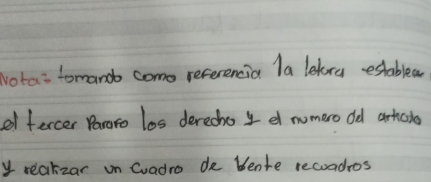 Nota: tomando como referencia la letura establecer
el tercer Pararo los derecho y el numero del articulo
y realizar un cuadro de Vente recuadros